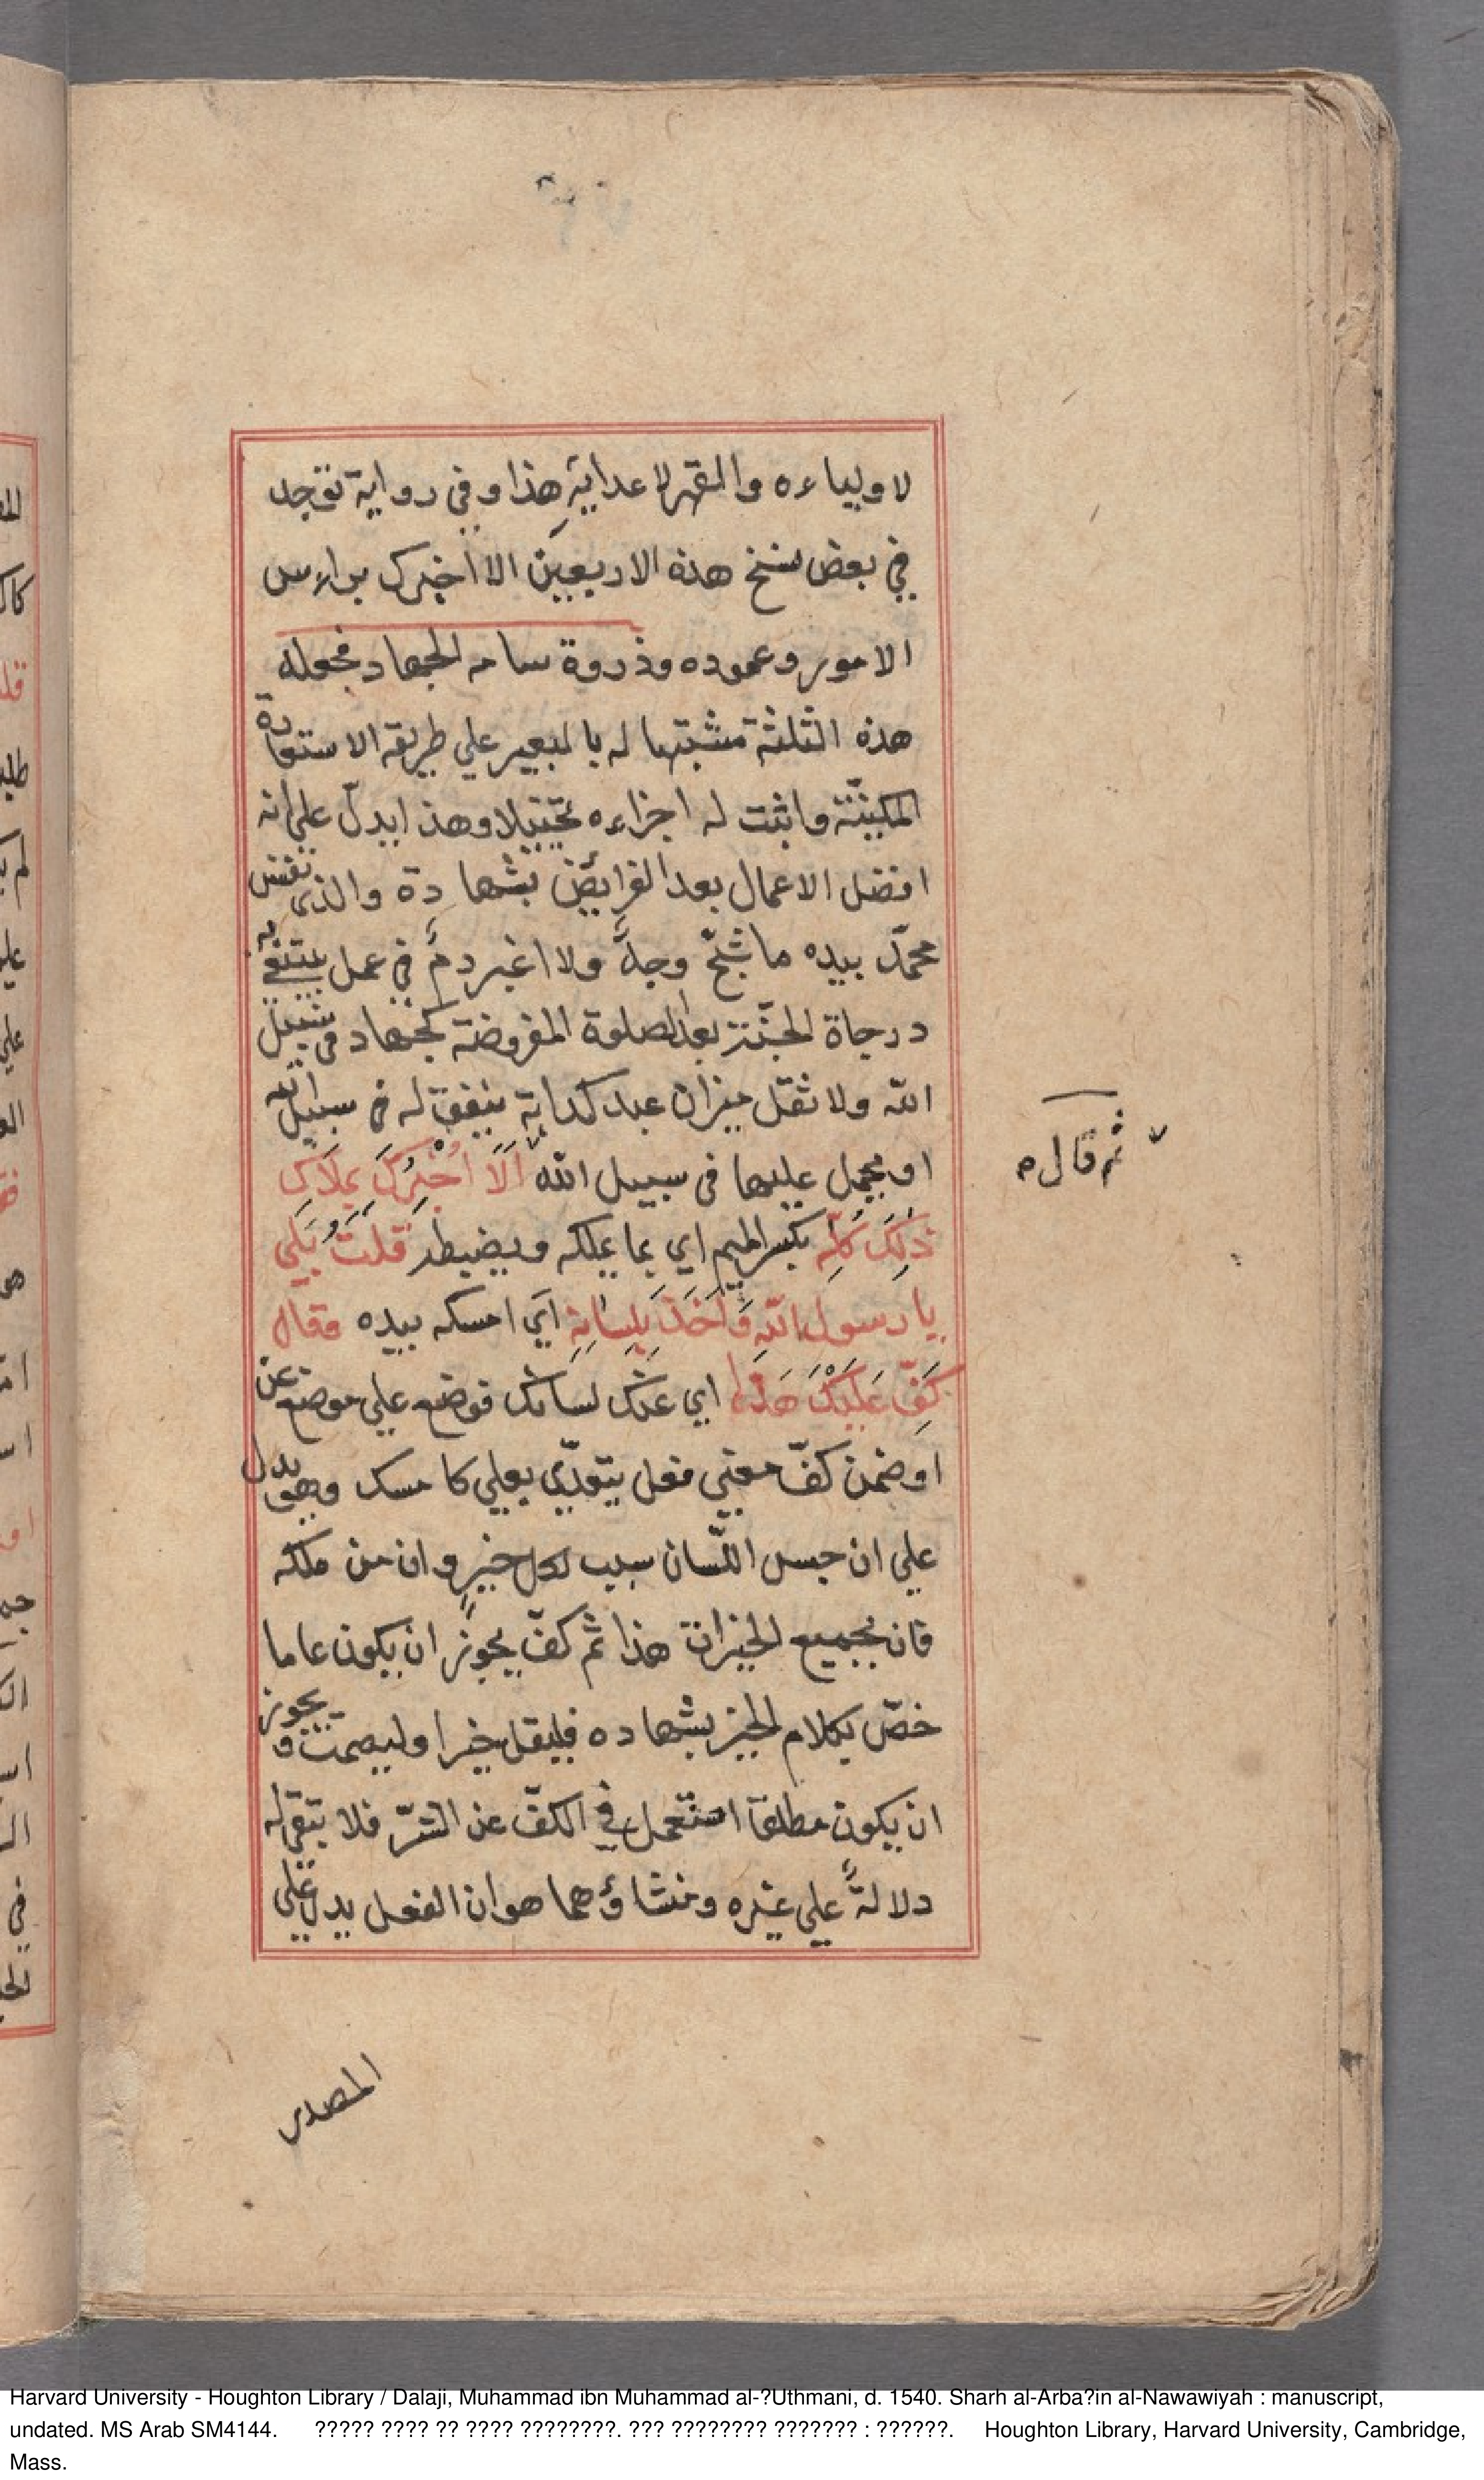 لاولياءه والقهر لاعدائه هذا وفي رواية توجد
في بعض نسخ هذه الاربعين الا اخبرك براس
الامور وعموده وذروة سنامه الجهاد فجعله
هذه الثلثة مشبتها له بالبعير علي طريقه الاستعارة
المكنيّة واثبت له اجزاءه تخييلا وهذا يدلّ علي انه
افضل الاعمال بعد الفرائض بشهادة والذي نفس
محمّد بيده ما شجّ وجهٌ ولا اغبر دمٌ في عمل يبتغي به
درجاة الجنّة بعد الصلوة المفروضة كجهاد في سبيل
الله ولا ثقل ميزان عبد كدابة ينفق له في سبيل الله
او يحمل عليها في سبيل الله اَلَا اُخْبِرُكَ بِمَلَاكِ
ثم قال م
ذَلِكَ كُلِّه بكسر الميم اي بما يملكه ويضبطه قُلْتُ بَلَي
يا رسول اللهِ فَاَخَذَ بِلِسَانِهِ اَي امسكه بيده فقال
كُفَّ عَلَيْكَ هَذَا اي عنك لسانك فوضع علي موضع عن
او ضمن كفّ معني فعل يتعدّي بعلي كامسك وهو يدل
علي ان حبس اللّسان سبب لكل خير وان من ملكه
فان بجميع الخيرات هذا ثم كفّ يجوز ان يكون عاما
خصّ بكلام الخير بشهاده فليقل خيرا وليصمت ويجوز
ان يكون مطلقا استعمل في الكفّ عن الشرّ فلا تبقي له
دلالةٌ علي غيره ومنشاؤهما هو ان الفعل يدل علي
المصدر
Harvard University - Houghton Library / Dalaji, Muhammad ibn Muhammad al-?Uthmani, d. 1540. Sharh al-Arba?in al-Nawawiyah : manuscript,
undated. MS Arab SM4144. ????? ???? ?? ???? ????????. ??? ???????? ??????? : ??????. Houghton Library, Harvard University, Cambridge,
Mass.